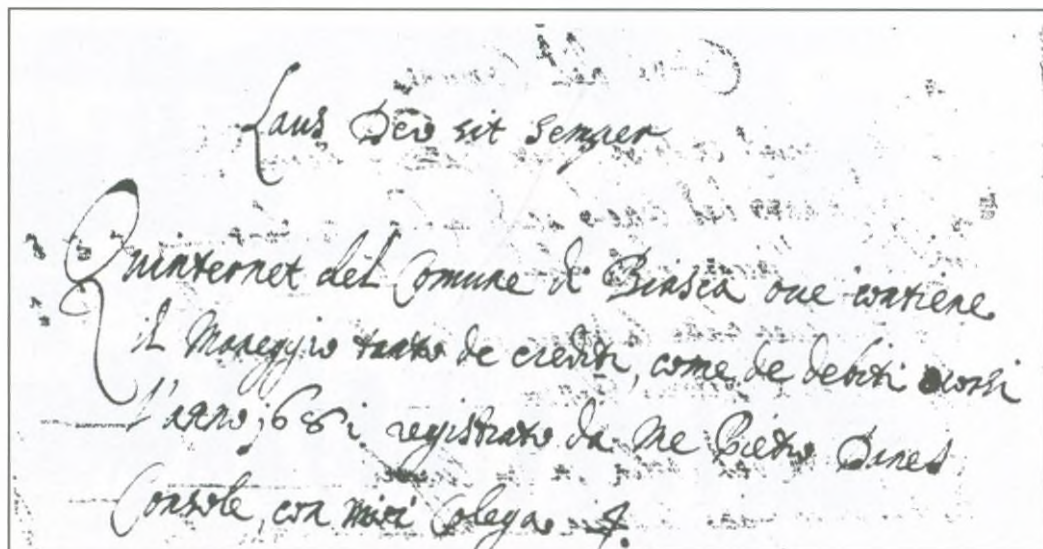 Laus Deo sit semper
Quinternet del Comune di Biasca oue contiene
il Maneggio tanto de crediti, come de debiti
l'anno i68i registrato da me Pietro
Console, con miei Colega